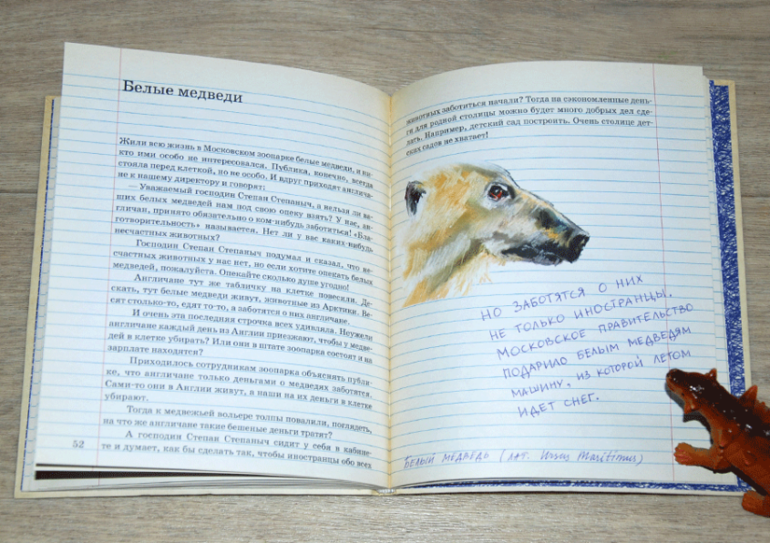 Белые медведи
Жили всю жизнь в Московском зоопарке белые медведи, и ни-
кто ими особо не интересовался. Публика, конечно, всегда
стояла перед клеткой, но не особо. И вдруг приходят англича-
не к нашему директору и говорят:
— Уважаемый господин Степан Степаныч, а нельзя ли ва-
ших белых медведей нам под свою опеку взять? У нас, ан-
гличан, принято обязательно о ком-нибудь заботиться! «Бла-
готворительность» называется. Нет ли у вас каких-нибудь
несчастных животных?
Господин Степан Степаныч подумал и сказал, что не-
счастных животных у нас нет, но если хотите опекать белых
медведей, пожалуйста. Опекайте сколько душе угодно!
Англичане тут же табличку на клетке повесили. Де-
скать, тут белые медведи живут, животные из Арктики. Ве-
сят столько-то, едят то-то, а заботятся о них англичане.
И очень эта последняя строчка всех удивляла. Неужели
англичане каждый день из Англии приезжают, чтобы у медве-
дей в клетке убирать? Или они в штате зоопарка состоят и на
зарплате находятся?
Приходилось сотрудникам зоопарка объяснять публи-
ке, что англичане только деньгами о медведях заботятся.
Сами-то они в Англии живут, а наши на их деньги в клетке
убирают.
Тогда к медвежьей вольере толпы повалили, поглядеть,
на что же англичане такие бешеные деньги тратят?
А господин Степан Степаныч сидит у себя в кабине-
те и думает, как бы сделать так, чтобы иностранцы обо всех
52
животных заботиться начали? Тогда на сэкономленные день-
ги для родной столицы можно будет много добрых дел сде-
лать. Например, детский сад построить. Очень столице дет-
ских садов не хватает!
НО ЗАБОТЯТСЯ О НИХ
НЕ ТОЛЬКО ИНОСТРАНЦЫ.
МОСКОВСКОЕ ПРАВИТЕЛЬСТВО
ПОДАРИЛО БЕЛЫМ МЕДВЕДЯМ
МАШИНУ, ИЗ КОТОРОЙ ЛЕТОМ
ИДЕТ СНЕГ.
БЕЛЫЙ МЕДВЕДЬ (лат. Ursus Maritimus)